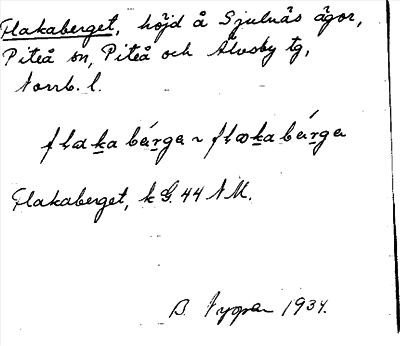 Flakaberget, höjd å Sjulnäs ägor,
Piteå sn, Piteå och Älvsby tg,
Norrb. l.
flakabärga ~ flækabärga
Flakaberget, k G. 44 NM.
B. 1934.